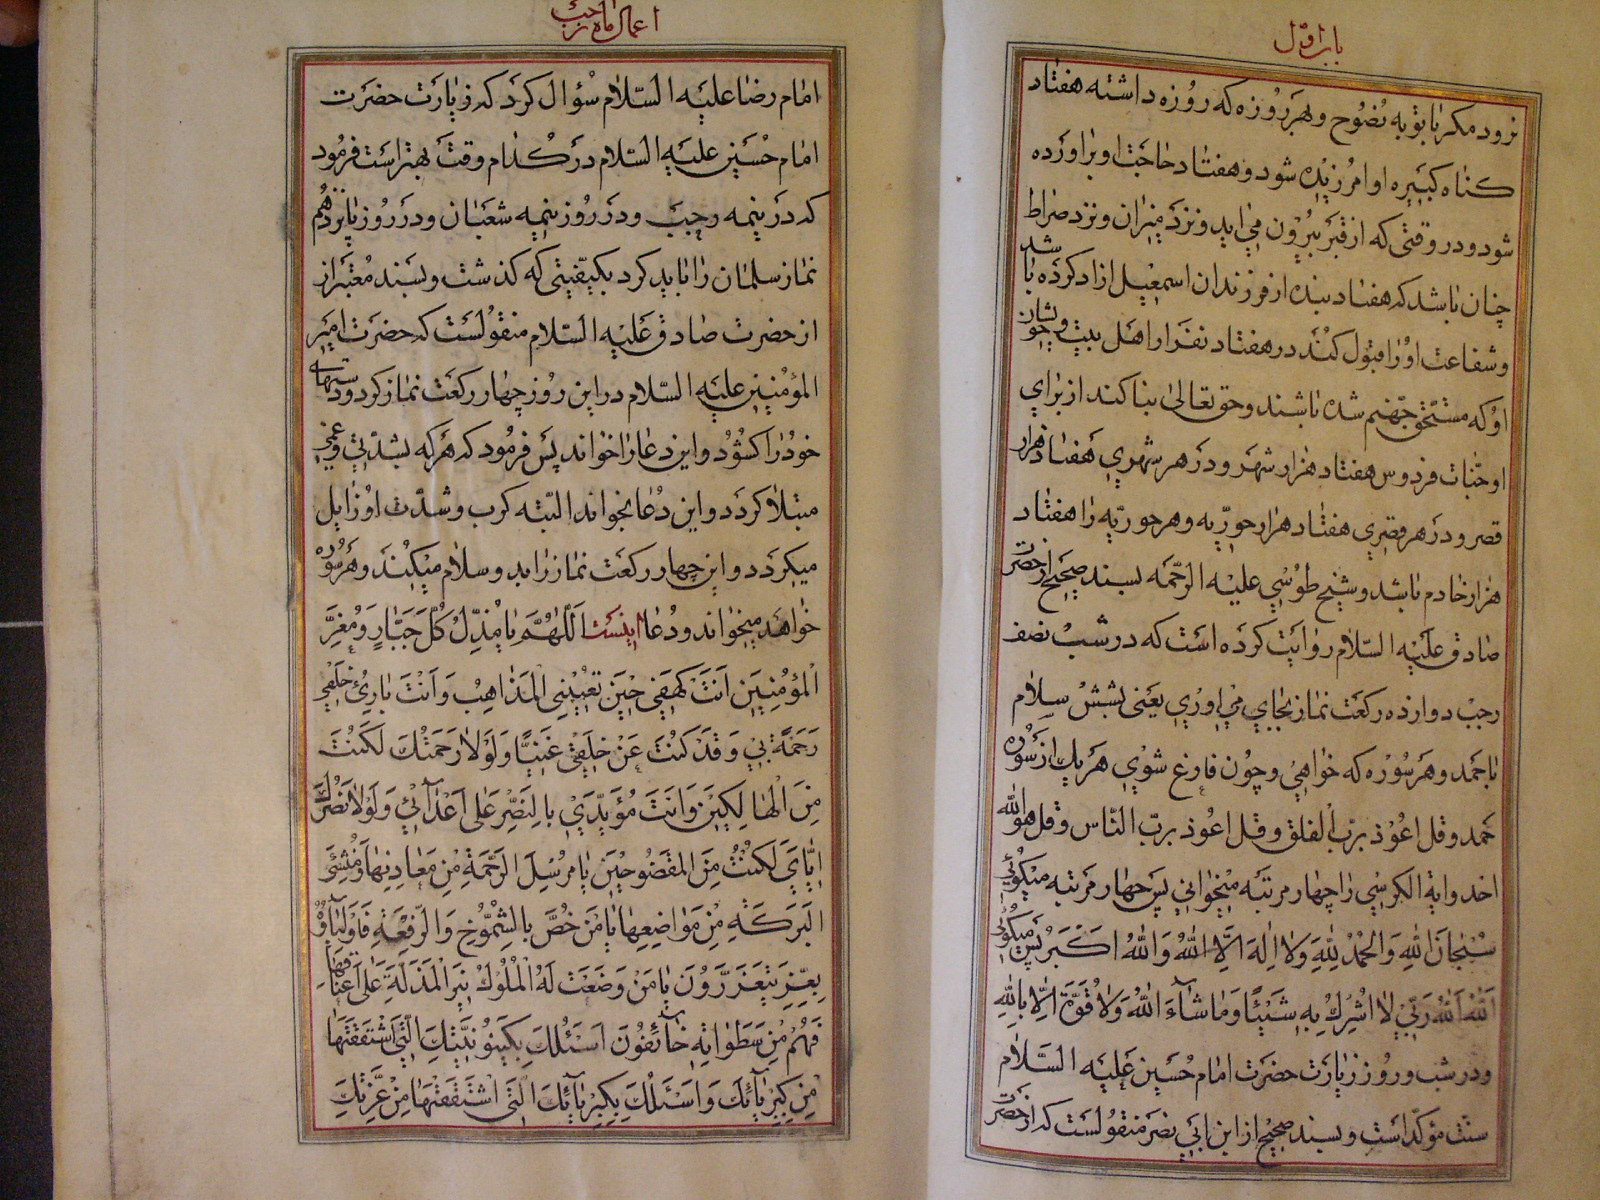 باب اوّل
نرود مکر با توبهٔ نصوح و بهر روزه که روزه داشته هفتاد
کناه کبیره او امرزیده شود و هفتاد حاجت او براورده
شود و در وقتی که از قبر بیرون می اید و نزد میزان و نزد صراط
چنان باشد که هفتاد بنده از فرزندان اسمعیل ازاد کرده باشد
و شفاعت او را قبول کنند در هفتاد نفر از اهل بیت و خویشان
او که مستحق جهنم شده باشند و حق تعالی بنا کند از برای
او جنات فردوس هفتاد هزار شهر و در هر شهری هفتاد هزار
قصر و در هر قصری هفتاد هزار حوریه و هر حوریه را هفتاد
هزار خادم باشد و شیخ طوسی علیه الرحمه بسند صحیح از حضرت
صادق علیه السلام روایت کرده است که در شب نصف
رجب دوازده رکعت نماز بجای می اوری یعنی بشش سلام
با حمد و هر سوره که خواهی و چون فارغ شوی هر یک از سوره
حمد و قل اعوذ برب الفلق و قل اعوذ برب الناس و قل هو الله
احد و ایة الکرسی را چهار مرتبه میخوانی پس چهار مرتبه میکوئی
سُبْحانَ اللهِ وَالْحَمْدُ لِلّهِ وَلا اِلهَ اِلَّا اللهُ وَاللهُ اَکْبَر پس میکوئی
اَللهُ اَللهُ رَبّی لا اُشْرِکُ بِهِ شَیْئًا وَما شآءَ اللهُ وَلا قُوَّةَ اِلّا بِاللهِ
و در شب و روز زیارت حضرت امام حسین علیه السلام
سنت مؤکد است و بسند صحیح از ابن ابی نصر منقولست که از حضرت
اعمال ماه رجب
امام رضا علیه السلام سؤال کرد که زیارت حضرت
امام حسین علیه السلام در کدام وقت بهتر است فرمود
که در نیمه رجب و در روز نیمه شعبان و در روز پانزدهم
نماز سلمان را باید کرد بکیفیتی که کذشت و بسند معتبر از
از حضرت صادق علیه السلام منقولست که حضرت امیر
المؤمنین علیه السلام در این روز چهار رکعت نماز کرد و دستهای
خود را کشود و این دعا را خواند پس فرمود که هر که بشدتی و غمی
مبتلا کردد و این دعا بخواند البته کرب و شدت او زایل
میکردد و این چهار رکعت نماز را بدو سلام میکنند و هر سوره
خواهد میخواند و دعا اینست اَللّهُمَّ یا مُذِلَّ کُلِّ جَبّارٍ وَ مُعِزَّ
الْمُؤْمِنینَ اَنْتَ کَهْفی حینَ تُعْیینِی الْمَذاهِبُ وَ اَنْتَ بارِئُ خَلْقی
رَحْمَةً بی وَ قَدْ کُنْتَ عَنْ خَلْقی غَنِیًّا وَ لَوْلا رَحْمَتُکَ لَکُنْتُ
مِنَ الْهالِکینَ وَ اَنْتَ مُؤَیِّدی بِالنَّصْرِ عَلی اَعْدآئی وَ لَوْلا نَصْرُکَ
اِیّایَ لَکُنْتُ مِنَ الْمَفْضُوحینَ یا مُرْسِلَ الرَّحْمَةِ مِنْ مَعادِنِها وَ مُنْشِئَ
الْبَرَکَةِ مِنْ مَواضِعِها یا مَنْ خَصَّ بِالشُّمُوخِ وَ الرِّفْعَةِ فَاَوْلِیآؤُهُ
بِعِزِّهِ یَتَعَزَّزُونَ یا مَنْ وَضَعَتْ لَهُ الْمُلُوکُ نیرَ الْمَذَلَّةِ عَلی اَعْناقِها
فَهُمْ مِنْ سَطَواتِهِ خآئِفُونَ اَسْئَلُکَ بِکَیْنُونِیَّتِکَ الَّتِی اشْتَقَقْتَها
مِنْ کِبْرِیآئِکَ وَ اَسْئَلُکَ بِکِبْرِیآئِکَ الَّتِی اشْتَقَقْتَها مِنْ عِزَّتِکَ